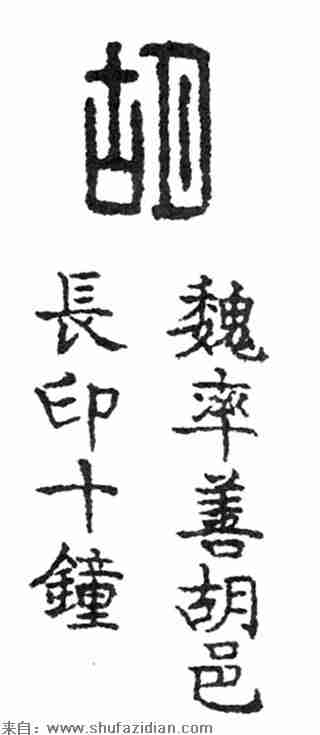 胡
魏率善胡邑
長印十鐘
来自：www.shufazidian.com